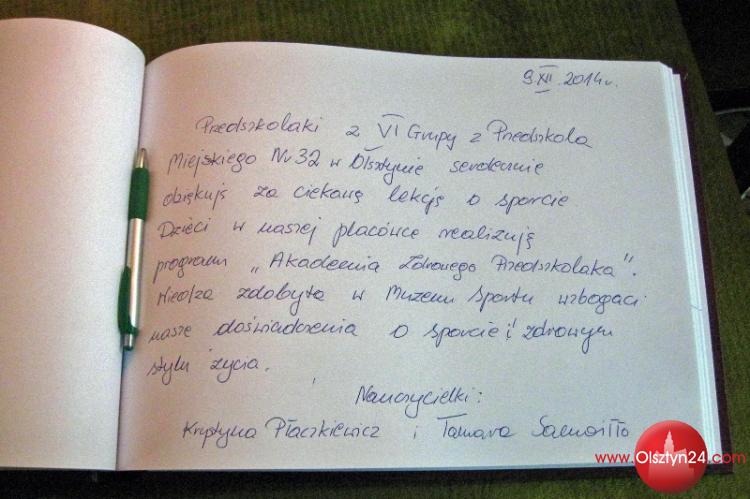 9.XII.2014r.
Przedszkolaki z VI Grupy z Przedszkola
Miejskiego Nr 32 w Olsztynie serdecznie
dziękują za ciekawą lekcję o sporcie
Dzieci w naszej placówce realizują
program „Akademia Zdrowego Przedszkolaka".
Wiedza zdobyta w Muzeum Sportu wzbogaci
nasze doświadczenia o sporcie i zdrowym
stylu życia.
Nauczycielki:
Krystyna Płaczkiewicz i Tamara
www.Olsztyn24.com